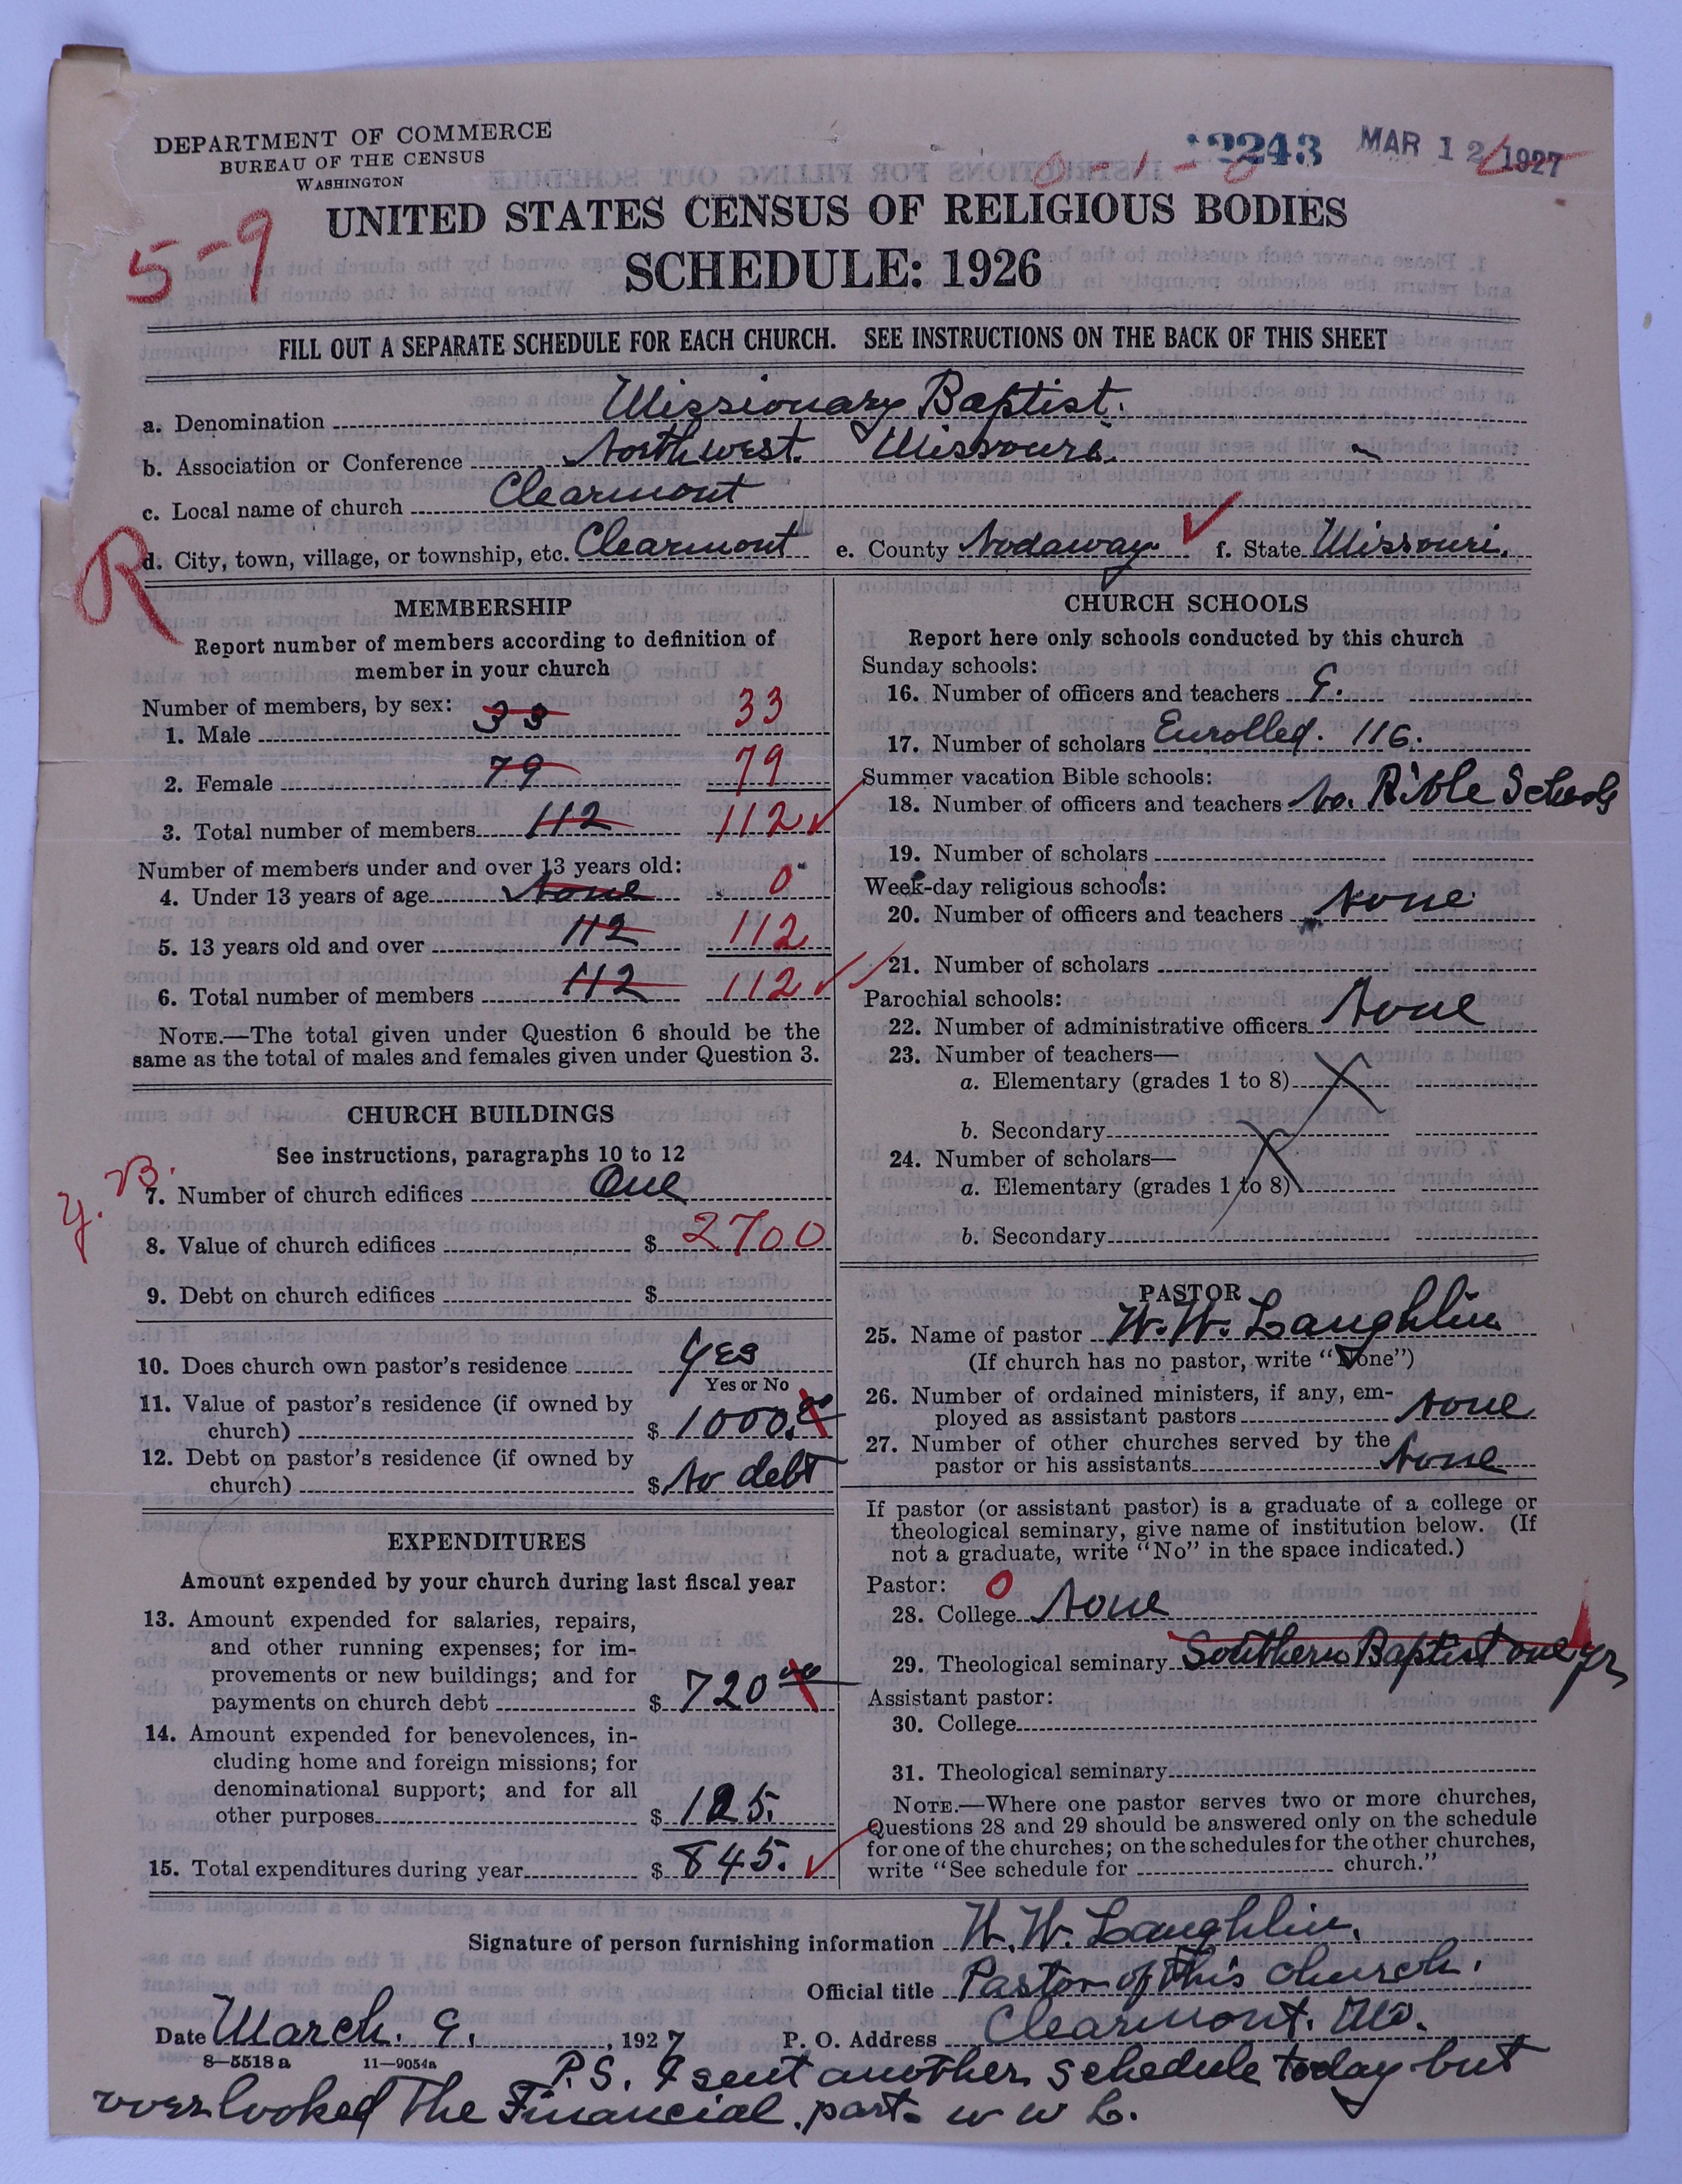 DEPARTMENT OF COMMERCE
BUREAU OF THE CENSUS
WASHINGTON
2243 MAR 12 1927
5-9
UNITED STATES CENSUS OF RELIGIOUS BODIES
SCHEDULE: 1926
FILL OUT A SEPARATE SCHEDULE FOR EACH CHURCH. SEE INSTRUCTIONS ON THE BACK OF THIS SHEET
a. Denomination Missionary Baptist.
b. Association or Conference Northwest. Missouri.
c. Local name of church Clearmont
R
d. City, town, village, or township, etc. Clearmont e. County Nodaway. f. State Missouri.
MEMBERSHIP
Report number of members according to definition of
member in your church
Number of members, by sex:
1. Male 33 33
2. Female 79 79
3. Total number of members 112 112
Number of members under and over 13 years old:
4. Under 13 years of age None 0
5. 13 years old and over 112 112
6. Total number of members 112 112
NOTE.—The total given under Question 6 should be the
same as the total of males and females given under Question 3.
CHURCH BUILDINGS
See instructions, paragraphs 10 to 12
7. Number of church edifices One
8. Value of church edifices $ 2700
9. Debt on church edifices $
10. Does church own pastor's residence Yes
Yes or No
11. Value of pastor's residence (if owned by
church) $ 1000.00
12. Debt on pastor's residence (if owned by
church) $ No debt
EXPENDITURES
Amount expended by your church during last fiscal year
13. Amount expended for salaries, repairs,
and other running expenses; for im-
provements or new buildings; and for
payments on church debt $ 720 00
14. Amount expended for benevolences, in-
cluding home and foreign missions; for
denominational support; and for all
other purposes $ 125.
15. Total expenditures during year $ 845.
CHURCH SCHOOLS
Report here only schools conducted by this church
Sunday schools:
16. Number of officers and teachers 9.
17. Number of scholars Enrolled. 116.
Summer vacation Bible schools:
18. Number of officers and teachers No. Bible Schools
19. Number of scholars
Week-day religious schools:
20. Number of officers and teachers None
21. Number of scholars
Parochial schools:
22. Number of administrative officers None
23. Number of teachers—
a. Elementary (grades 1 to 8)
b. Secondary
24. Number of scholars—
a. Elementary (grades 1 to 8)
b. Secondary
PASTOR
25. Name of pastor W. W. Laughlin
(If church has no pastor, write "None")
26. Number of ordained ministers, if any, em-
ployed as assistant pastors None
27. Number of other churches served by the
pastor or his assistants None
If pastor (or assistant pastor) is a graduate of a college or
theological seminary, give name of institution below. (If
not a graduate, write "No" in the space indicated.)
Pastor: 0
28. College None
29. Theological seminary Southern Baptist one yr
Assistant pastor:
30. College
31. Theological seminary
NOTE.—Where one pastor serves two or more churches,
Questions 28 and 29 should be answered only on the schedule
for one of the churches; on the schedules for the other churches,
write "See schedule for church."
Signature of person furnishing information W. W. Laughlin.
Official title Pastor of this church.
Date March. 9. , 1927 P. O. Address Clearmont. Mo.
8—5518a 11—9054a
P.S. I sent another schedule today but
overlooked The Financial part. W W L.